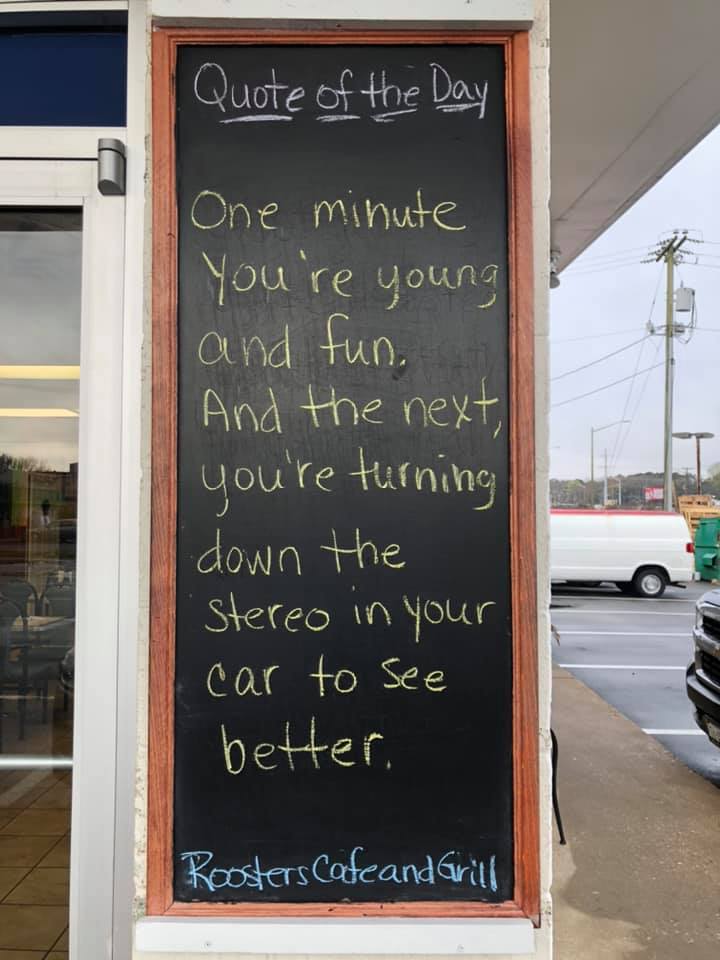 Quote of the Day
One minute
You're young
and fun.
And the next,
you're turning
down the
Stereo in your
car to see
better.
Roosters Cafe and Grill